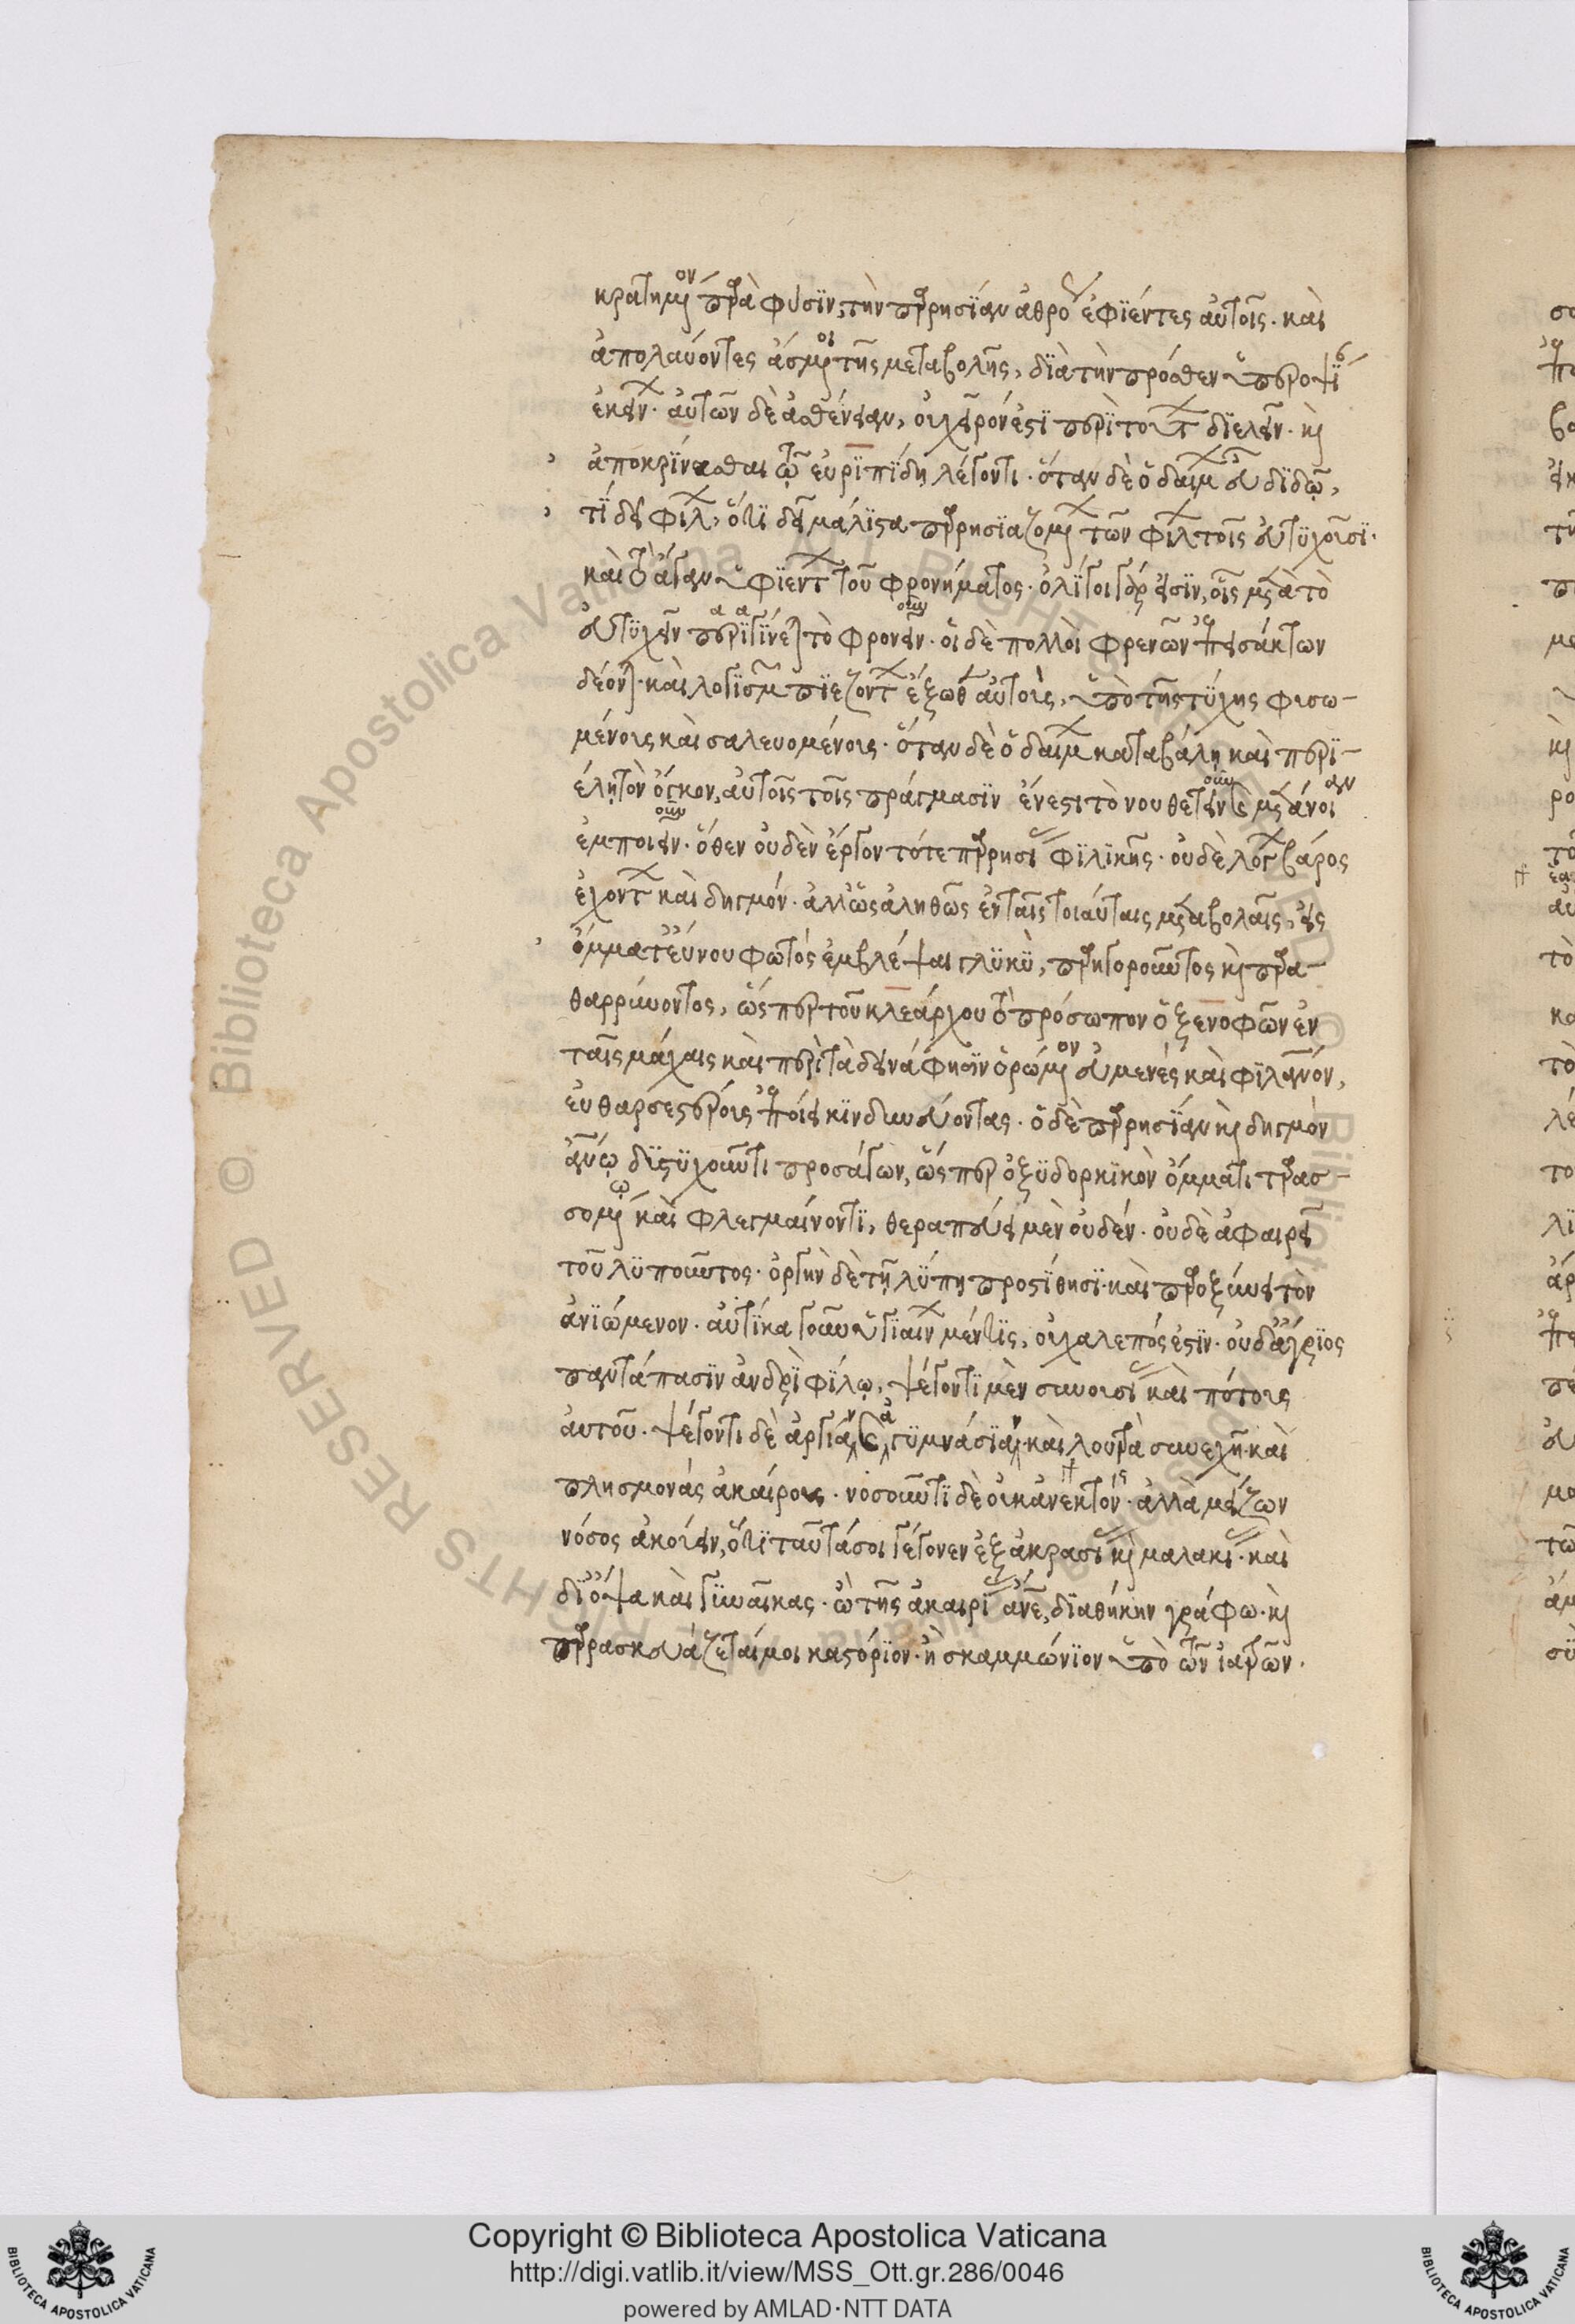 κρατημένον παρὰ φύσιν, τὴν παρρησίαν ἀθρόαν ἐφιέντες αὐτοῖς. καὶ
ἀπολαύοντες ἄσμενοι τῆς μεταβολῆς, διὰ τὴν πρόσθεν ὑπεροψίαν
ἐκείνων. αὐτῶν δὲ ἀσθένειαν, οὐ χεῖρόν ἐστι περὶ τούτων διελθεῖν. καὶ
ἀποκρίνασθαι τῷ εὐριπίδῃ λέγοντι. ὅταν δὲ ὁ δαίμων εὖ διδῷ,
τί δεῖ φίλων, ὅτι δεῖ μάλιστα παρρησιαζομένων τῶν φίλων τοῖς εὐτυχοῦσι.
καὶ τὸ ἄγαν ὑφιέντων τοῦ φρονήματος. ὀλίγοι γάρ εἰσιν, οἷς μετὰ τὸ
εὐτυχεῖν παραγίνεται τὸ φρονεῖν. οἱ δὲ πολλοὶ φρενῶν ἐπεισάκτων
δέονται. καὶ λογισμῶν πιεζόντων ἔξωθεν αὐτοὺς, ὑπὸ τῆς τύχης φυσω-
μένους καὶ σαλευομένους. ὅταν δὲ ὁ δαίμων καταβάλῃ καὶ περι-
έλῃ τὸν ὄγκον, αὐτοῖς τοῖς πράγμασιν ἔνεστι τὸ νουθετοῦν καὶ μετάνοιαν
ἐμποιοῦν. ὅθεν οὐδὲν ἔργον τότε παρρησίας φιλικῆς. οὐδὲ λόγων βάρος
ἐχόντων καὶ δηγμόν. ἀλλ' ὡς ἀληθῶς ἐν ταῖς τοιαύταις μεταβολαῖς, εἰς
ὄμματ' εὔνου φωτὸς ἐμβλέψαι γλυκὺ, παρηγοροῦντος καὶ παρα-
θαρρύνοντος, ὥσπερ τοῦ κλεάρχου τὸ πρόσωπον ὁ ξενοφῶν ἐν
ταῖς μάχαις καὶ περὶ τὰ δεινά φησιν ὁρώμενον εὐμενὲς καὶ φιλάνθρωπον,
εὐθαρσεστέρους ἐποίει κινδυνεύοντας. ὁ δὲ παρρησίαν καὶ δηγμὸν
ἀνθρώπῳ δυστυχοῦντι προσάγων, ὥσπερ ὀξυδορκικὸν ὄμματι ταρασ-
σομένῳ καὶ φλεγμαίνοντι, θεραπεύει μὲν οὐδέν. οὐδὲ ἀφαιρεῖ
τοῦ λυποῦντος. ὀργὴν δὲ τῇ λύπῃ προστίθησι. καὶ παροξύνει τὸν
ἀνιώμενον. αὐτίκα γοῦν ὑγιαίνων μέν τις, οὐ χαλεπός ἐστιν. οὐδ' ἄγριος
παντάπασιν ἀνδρὶ φίλῳ, ψέγοντι μὲν συνουσίας καὶ πότους
αὐτοῦ. ψέγοντι δὲ ἀργίαν καὶ ἀγυμνασίαν. καὶ λουτρὰ συνεχῆ. καὶ
πλησμονὰς ἀκαίρους. νοσοῦντι δὲ οὐκ ἀνεκτόν. ἀλλὰ μείζων
νόσος ἀκούειν, ὅτι ταῦτά σοι γέγονεν ἐξ ἀκρασίας καὶ μαλακίας. καὶ
δι' ὄψα καὶ γυναῖκας. ὢ τῆς ἀκαιρίας ἄνθρωπε, διαθήκην γράφω. καὶ
παρασκευάζεταί μοι καστόριον. ἢ σκαμμώνιον ὑπὸ τῶν ἰατρῶν.
Copyright © Biblioteca Apostolica Vaticana
http://digi.vatlib.it/view/MSS_Ott.gr.286/0046
powered by AMLAD·NTT DATA